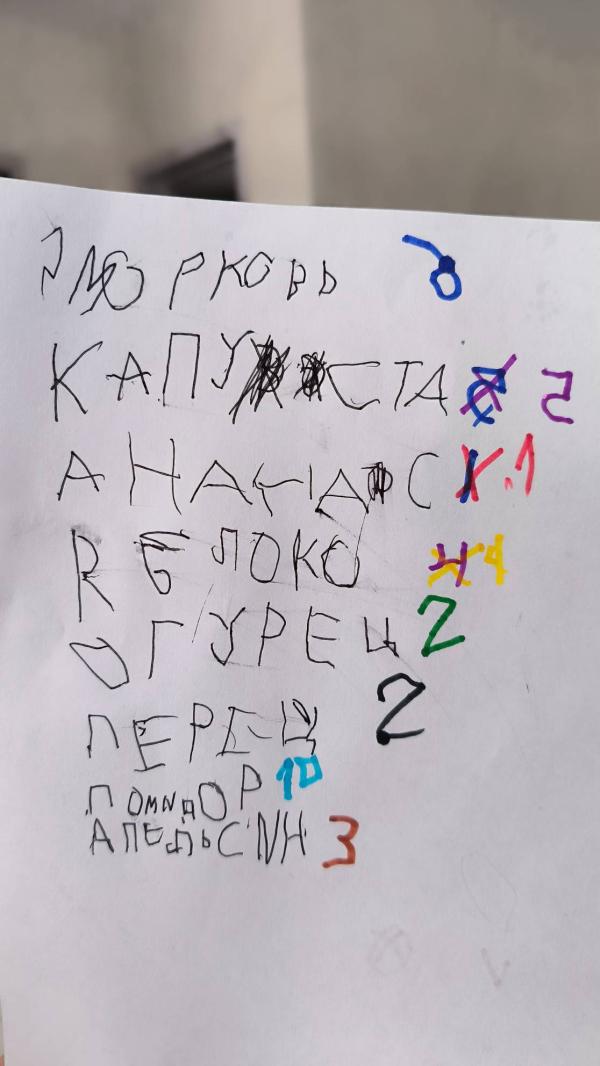 МОРКОВЬ 6
КАПУСТА 5
АНАНАС 1
ЯБЛОКО 4
ОГУРЕЦ 2
ПЕРЕЦ 2
ПОМИДОР 10
АПЕЛЬСИН 3